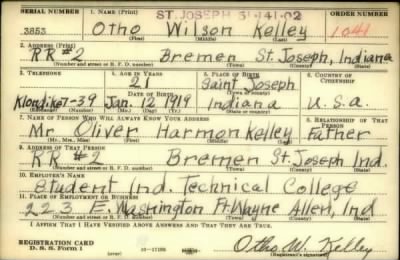 SERIAL NUMBER 1. NAME (Print) ST. JOSEPH 3-141-02 ORDER NUMBER
3853 Otho Wilson Kelley 1041
(First) (Middle) (Last)
2. ADDRESS (Print)
RR #2 Bremen St. Joseph, Indiana
(Number and street or R. F. D. number) (Town) (County) (State)
3. TELEPHONE 4. AGE IN YEARS 5. PLACE OF BIRTH 6. COUNTRY OF CITIZENSHIP
21 Saint Joseph
DATE OF BIRTH (Town or county)
Klondike 7-39 Jan. 12 1919 Indiana U.S.a.
(Exchange) (Number) (Mo.) (Day) (Yr.) (State or country)
7. NAME OF PERSON WHO WILL ALWAYS KNOW YOUR ADDRESS 8. RELATIONSHIP OF THAT PERSON
Mr. Oliver Harmon Kelley Father
(Mr., Mrs., Miss) (First) (Middle) (Last)
9. ADDRESS OF THAT PERSON
RR #2 Bremen St. Joseph Ind.
(Number and street or R. F. D. number) (Town) (County) (State)
10. EMPLOYER'S NAME
Student Ind. Technical College
11. PLACE OF EMPLOYMENT OR BUSINESS
223 E. Washington Ft Wayne Allen, Ind
(Number and street or R. F. D. number) (Town) (County) (State)
I AFFIRM THAT I HAVE VERIFIED ABOVE ANSWERS AND THAT THEY ARE TRUE.
REGISTRATION CARD
D. S. S. Form 1 Otho W. Kelley
(Registrant's signature)